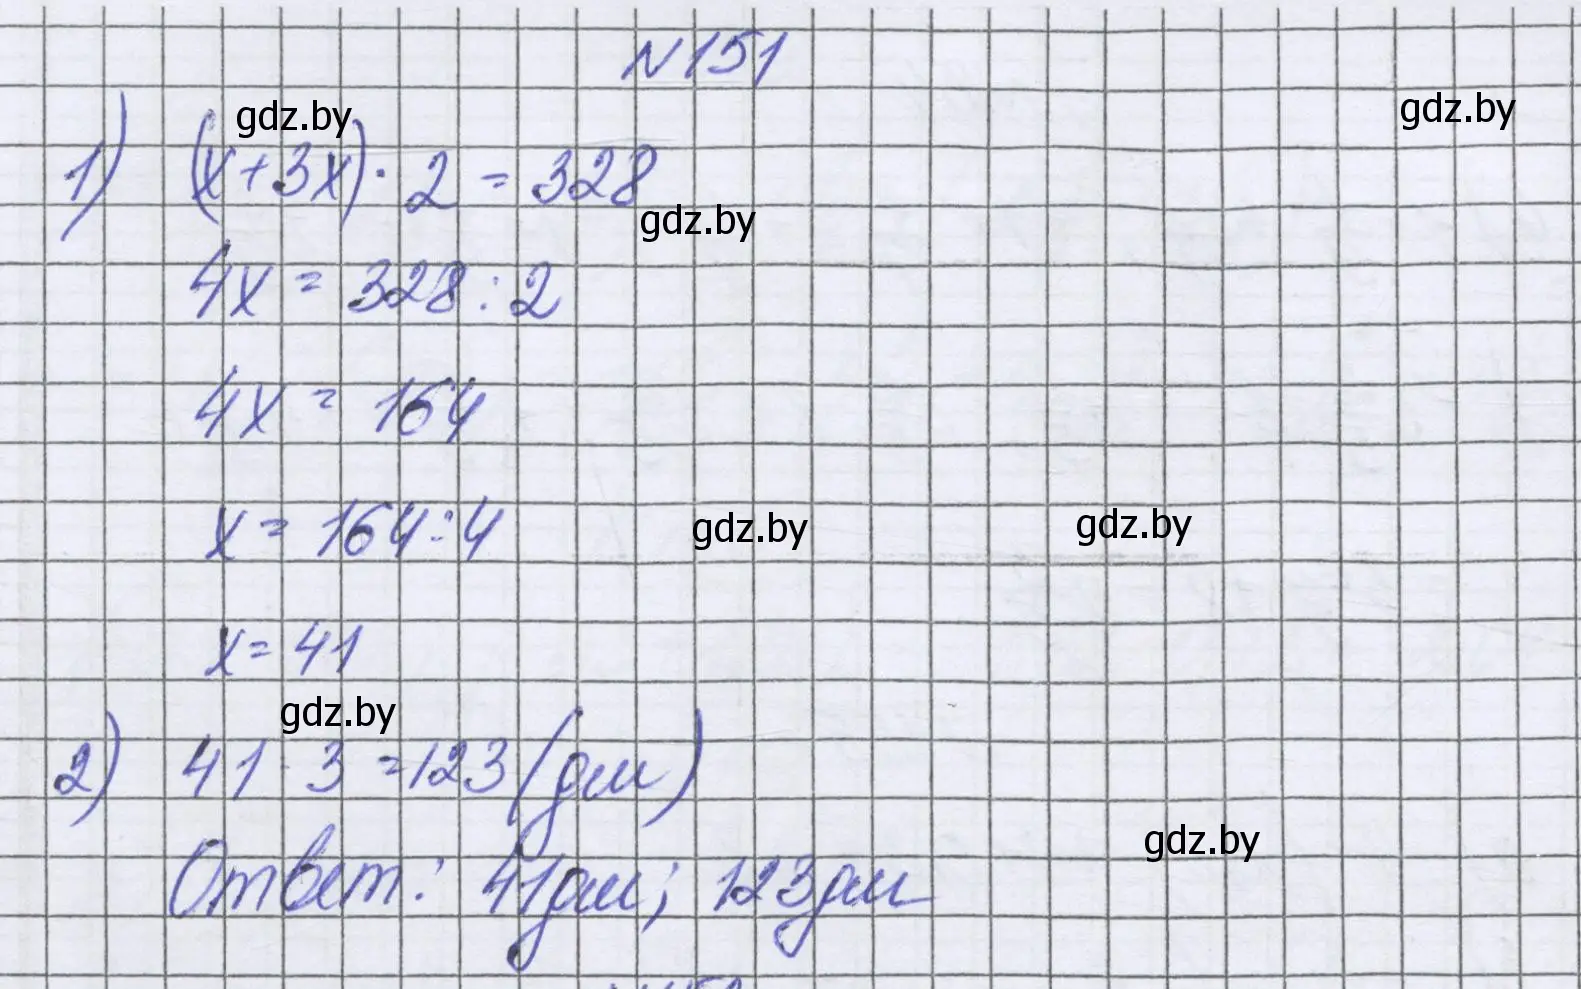 N151
gdz.by
gdz.by
1) (x+3x)·2=328
gdz.by
4x=328:2
4x=164
x=164:4
gdz.by
gdz.by
x=41
gdz.by
2) 41·3=123(дм)
gdz.by
Ответ: 41дм; 123дм